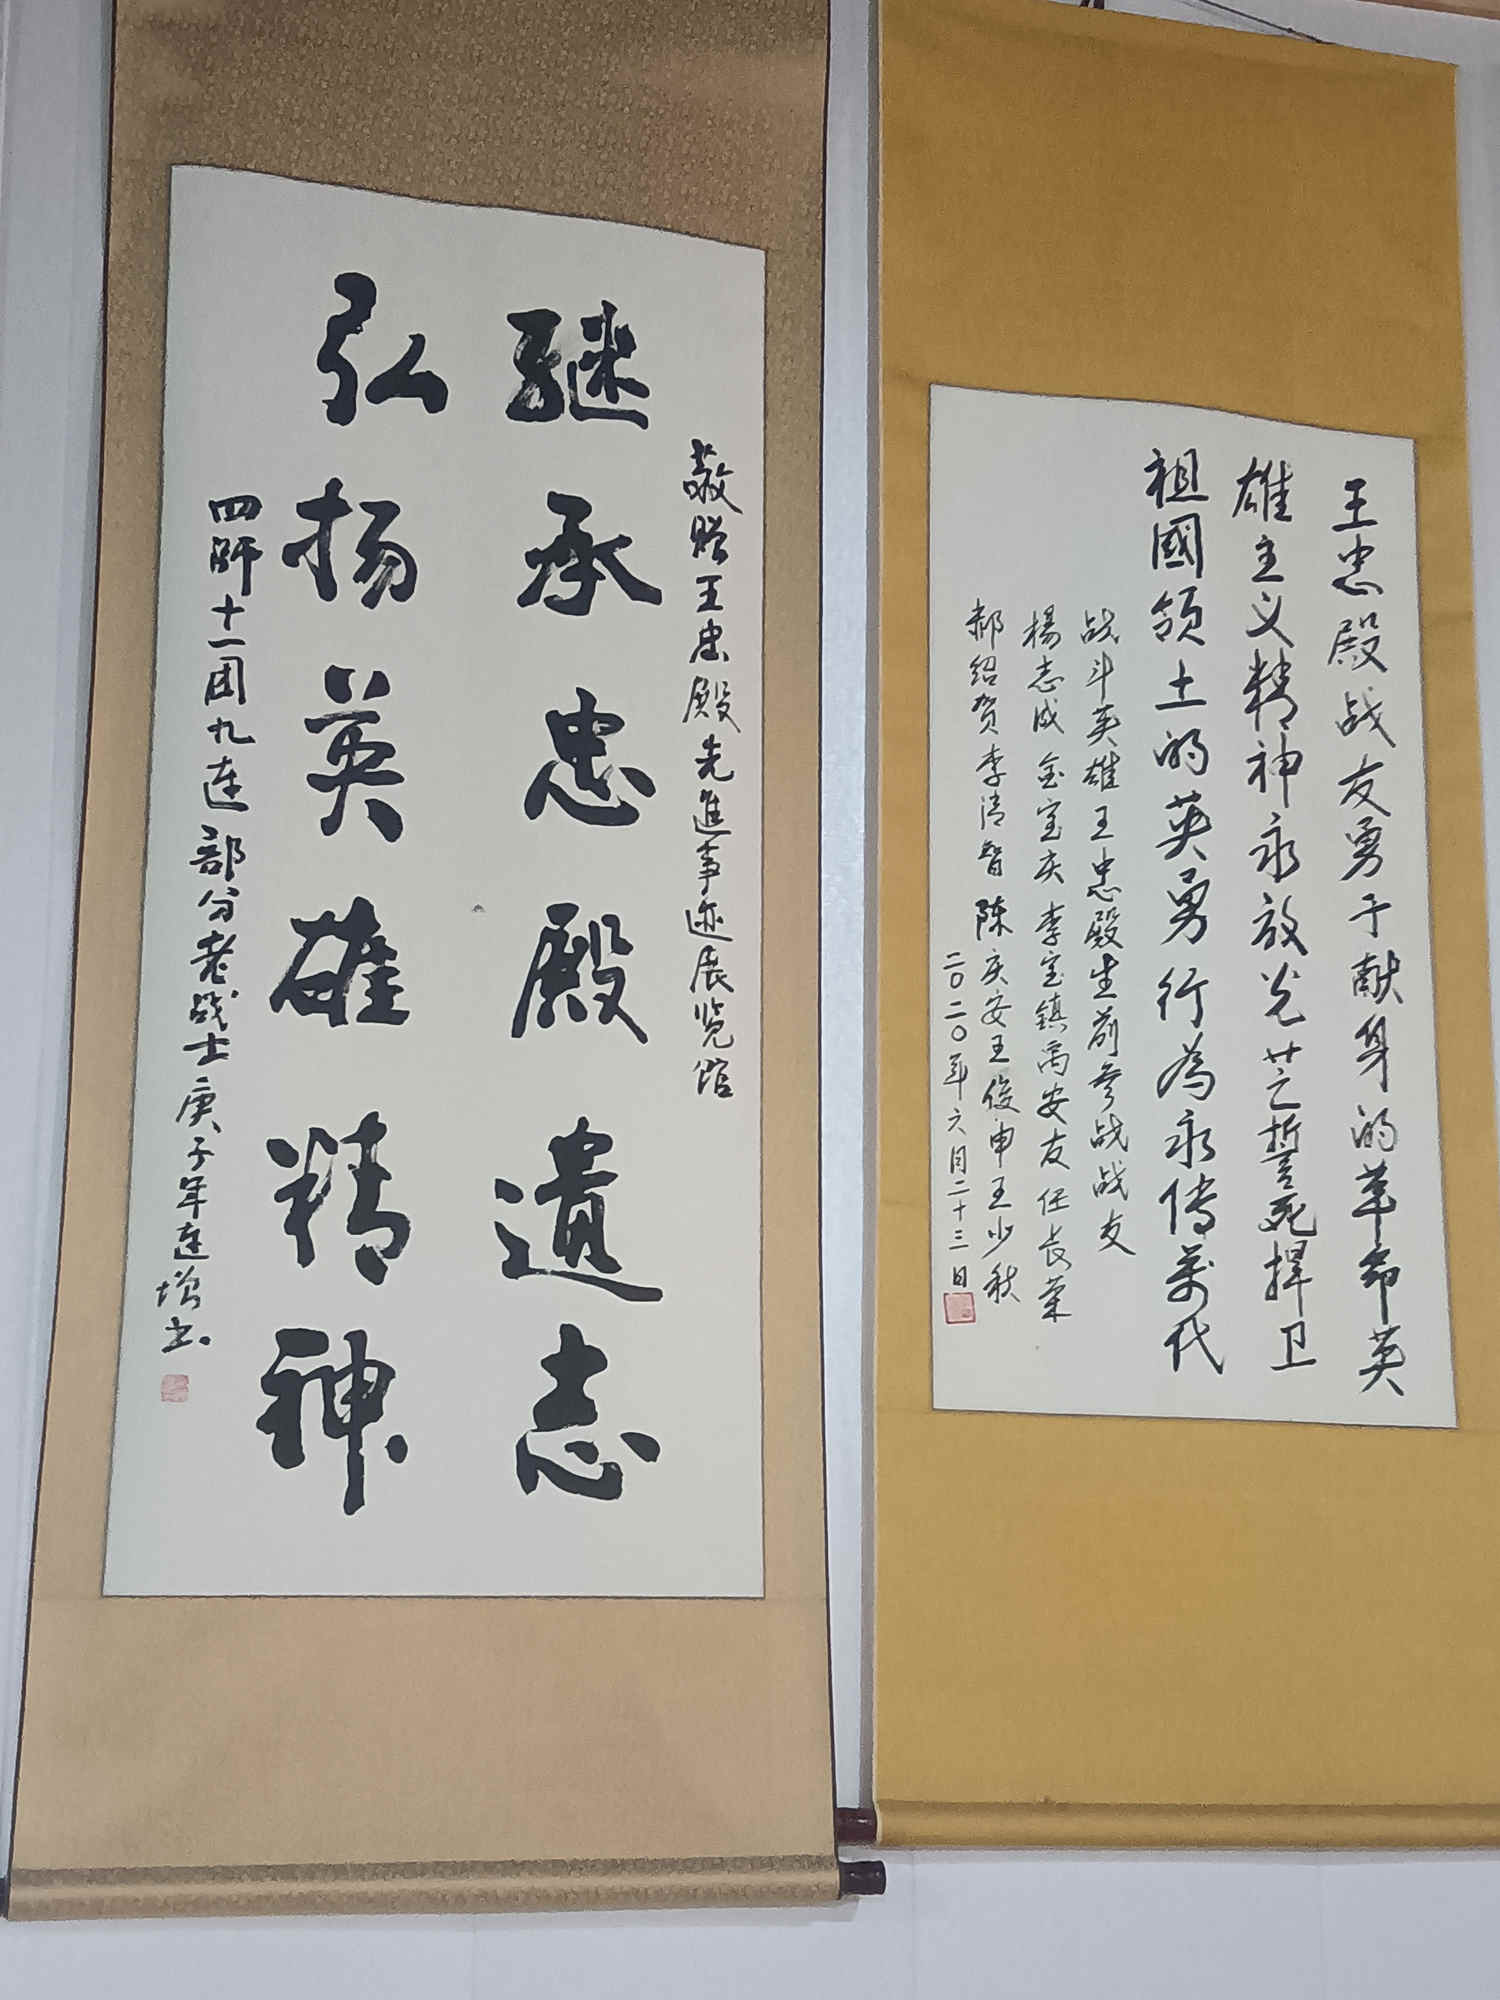 王忠殿战友勇于献身的革命英
雄主义精神永放光芒誓死捍卫
祖國领土的英勇行為永传萬代
战斗英雄王忠殿生前参战战友
楊志成金宝庆李宝鎮高安友任长荣
郝绍贺李清智陈庆安王俊申王少秋
二〇二〇年六月二十三日
敬赠王忠殿先進事迹展览馆
继承忠殿遗志
弘扬英雄精神
四师十一团九连部分老战士庚子年连增书